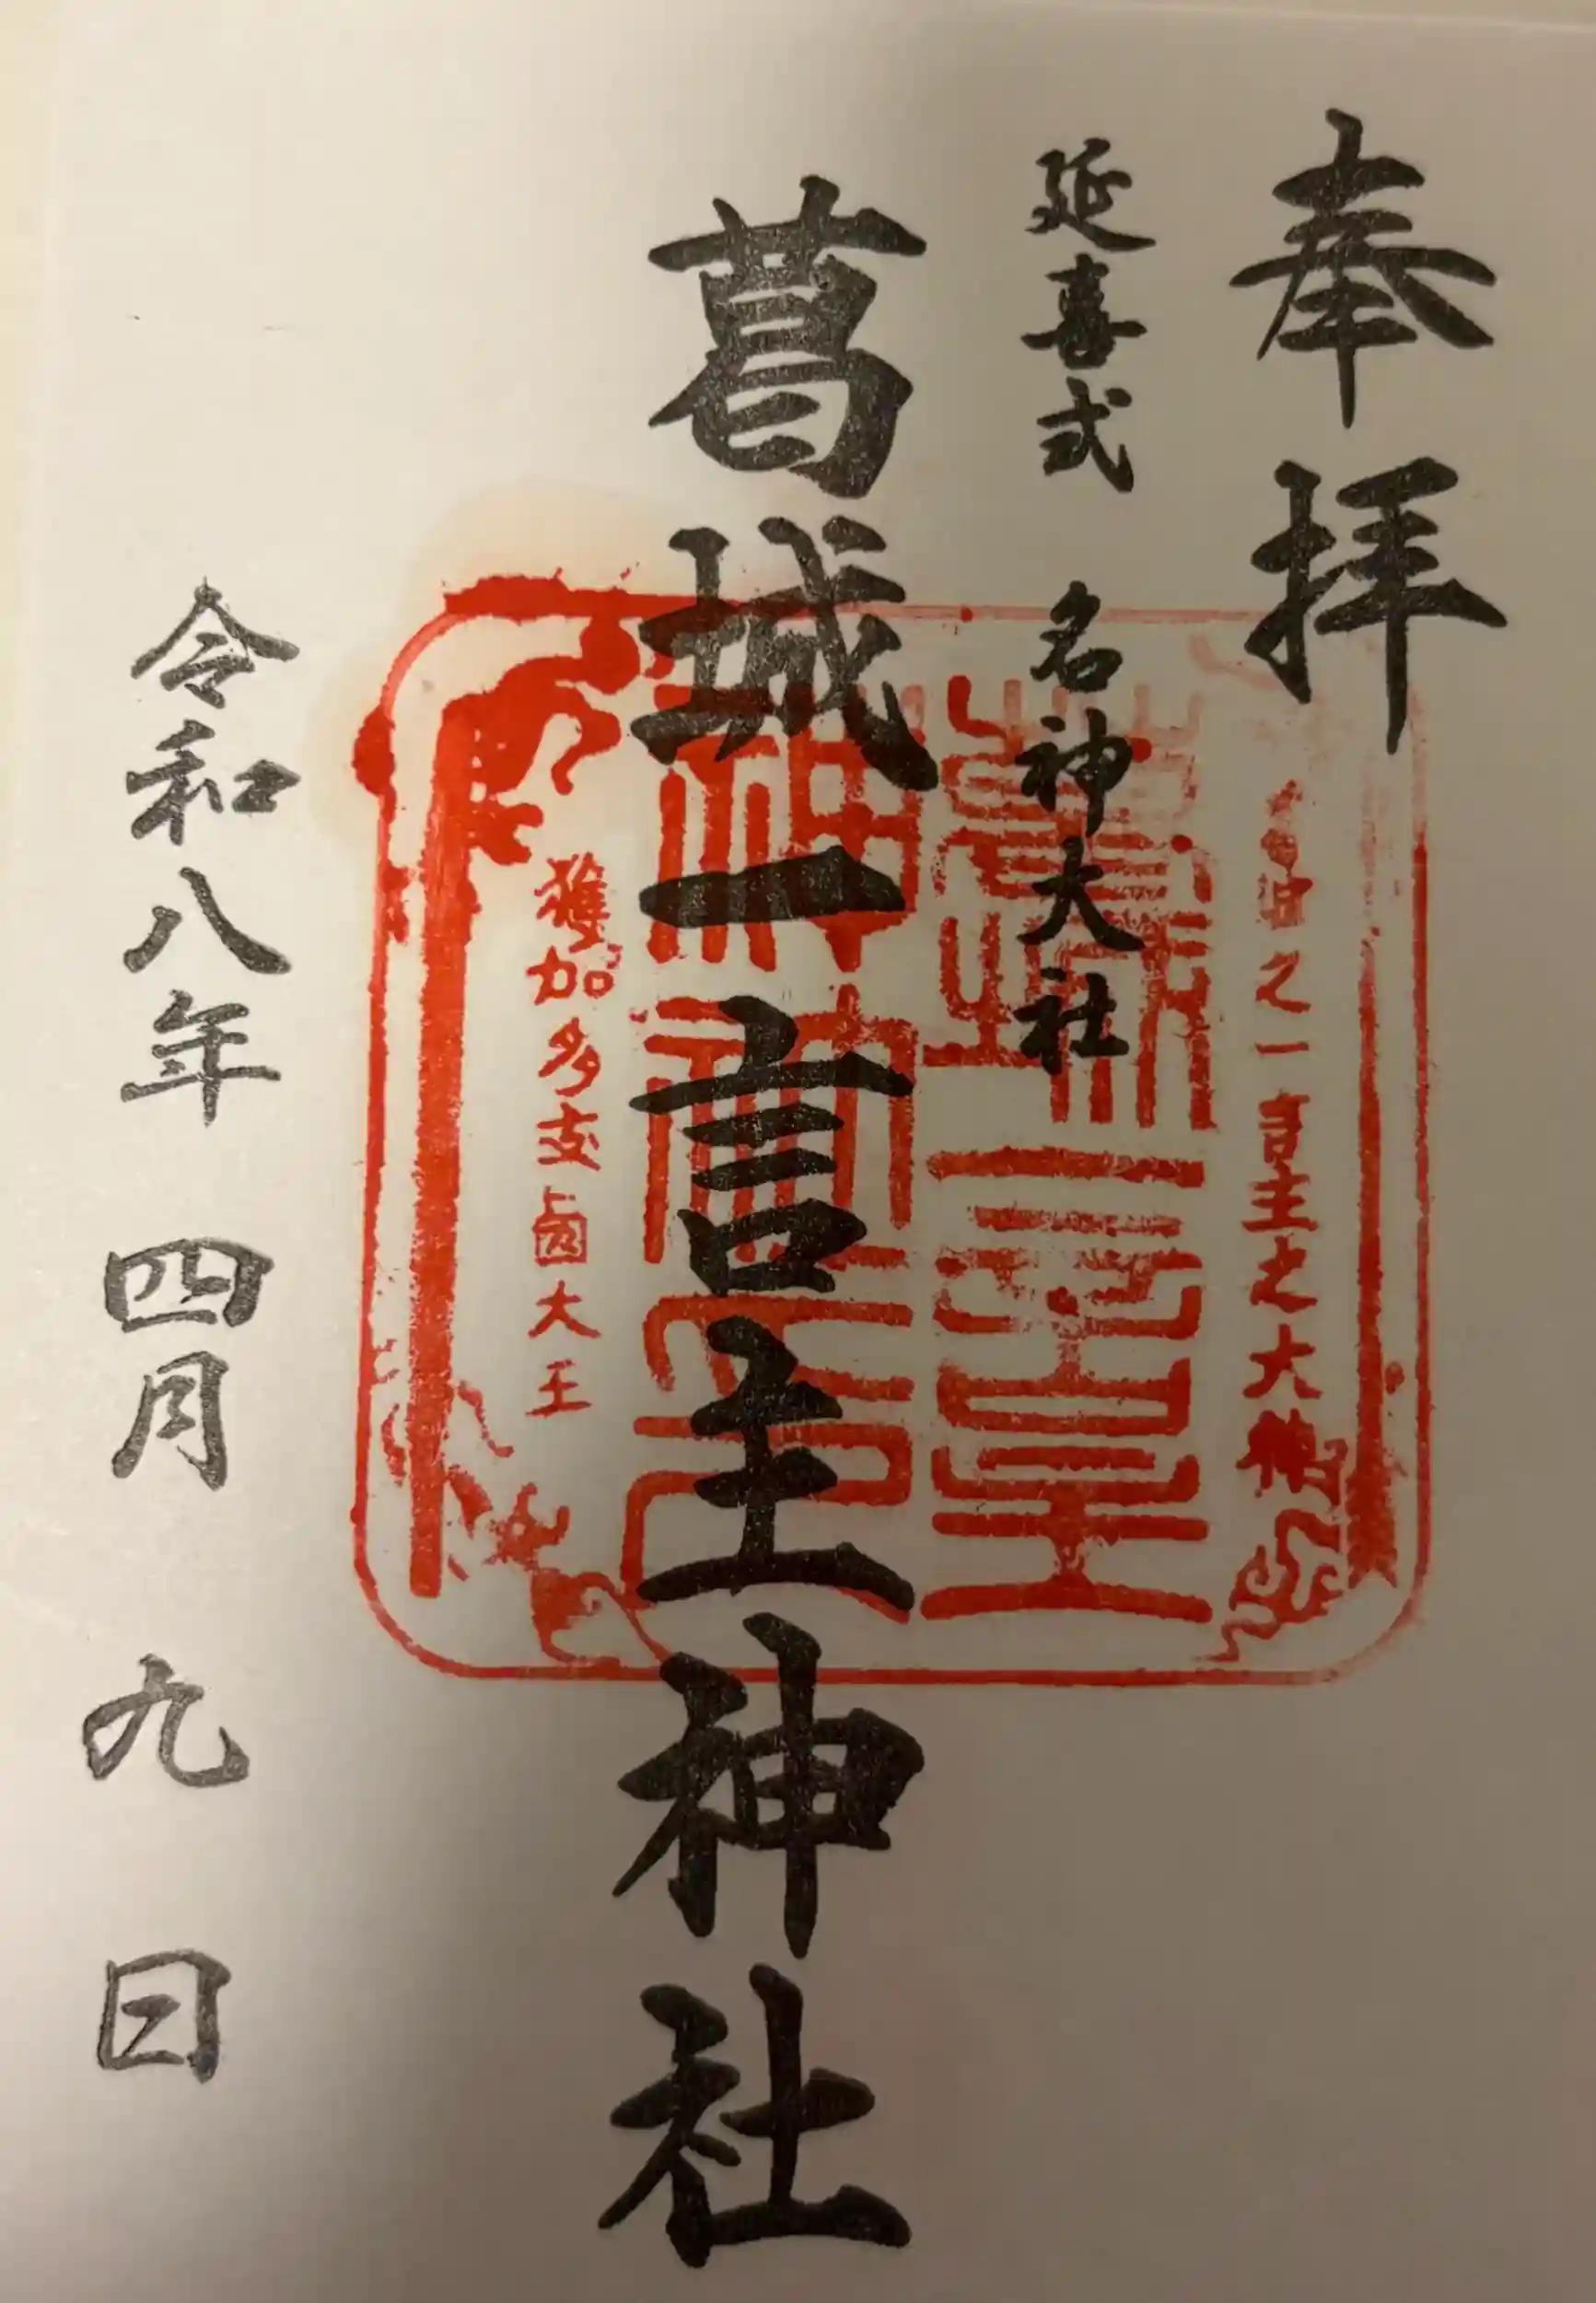 奉拝
延喜式 名神大社
葛城一言主神社
之一言主之大神
葛城一言主
神社之印
獲加多支鹵大王
令和八年 四月 九 日